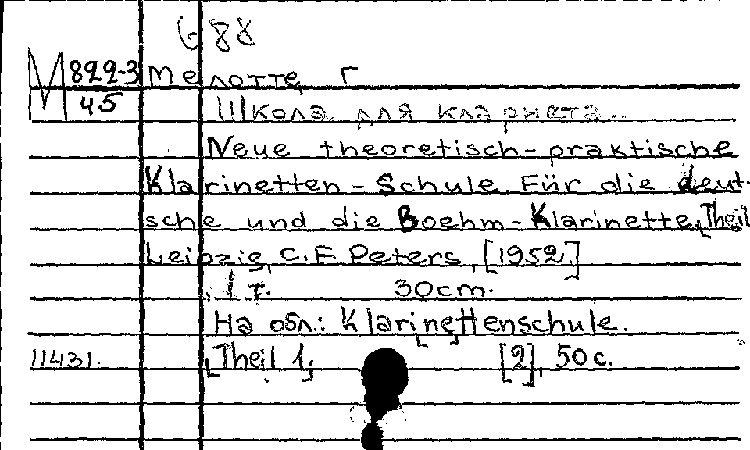 688
М 822-3 Мелотте, Г
45 Школа для клариета..
Neue theoretisch-praktische
Klarinetten-Schule Für die deut-
sche und die Boehm-Klarinette, Theil
Leipzig, C.F. Peters, [1952]
1 т. 30cm.
На обл.: Klarinettenschule.
11431. [Theil 1,] [2], 50 с.